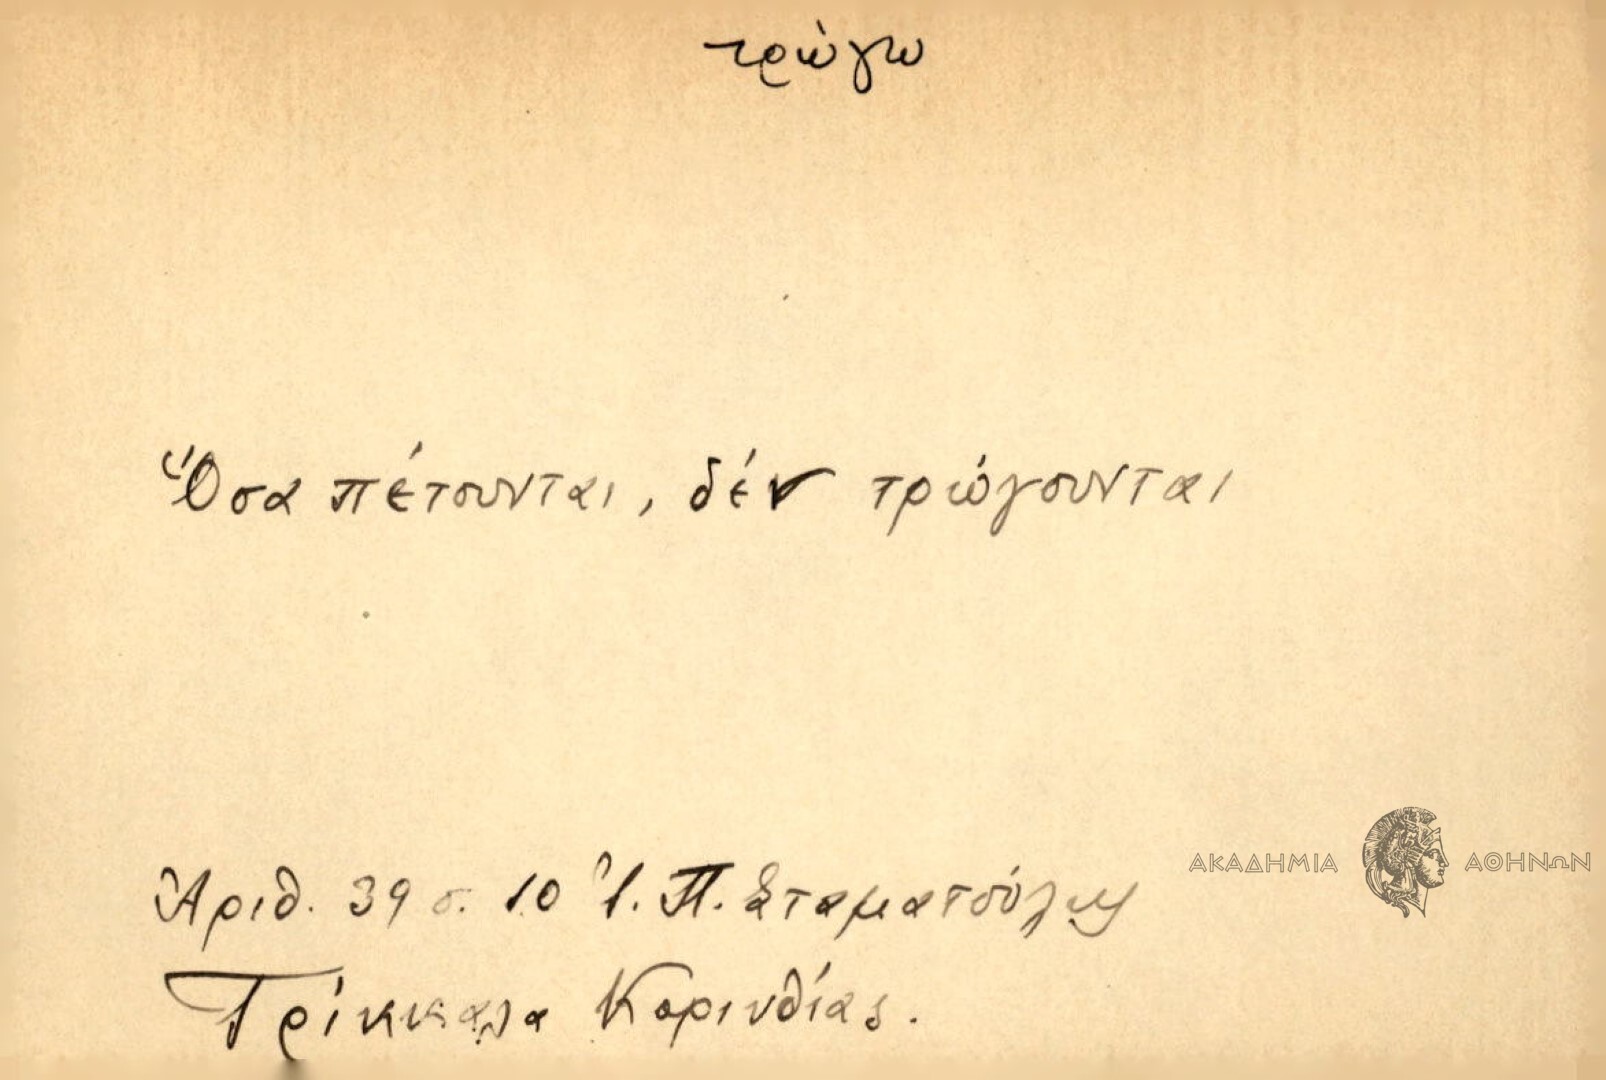 τρώγω
Ὅσα πέτουνται, δέν τρώγουνται
ΑΚΑΔΗΜΙΑ ΑΘΗΝΩΝ
Ἀριθ. 39 σ. 10 Ἰ. Π. Σταματούλης
Τρίκκαλα Κορινθίας.